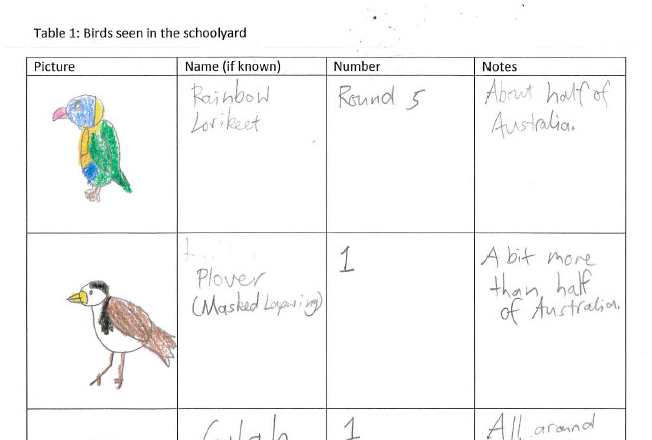 Table 1: Birds seen in the schoolyard
Picture Name (if known) Number Notes
Rainbow
Lorikeet
Round 5
About half of
Australia.
Plover
(Masked Lapwing)
1
A bit more
than half
of Australia.
1
All around